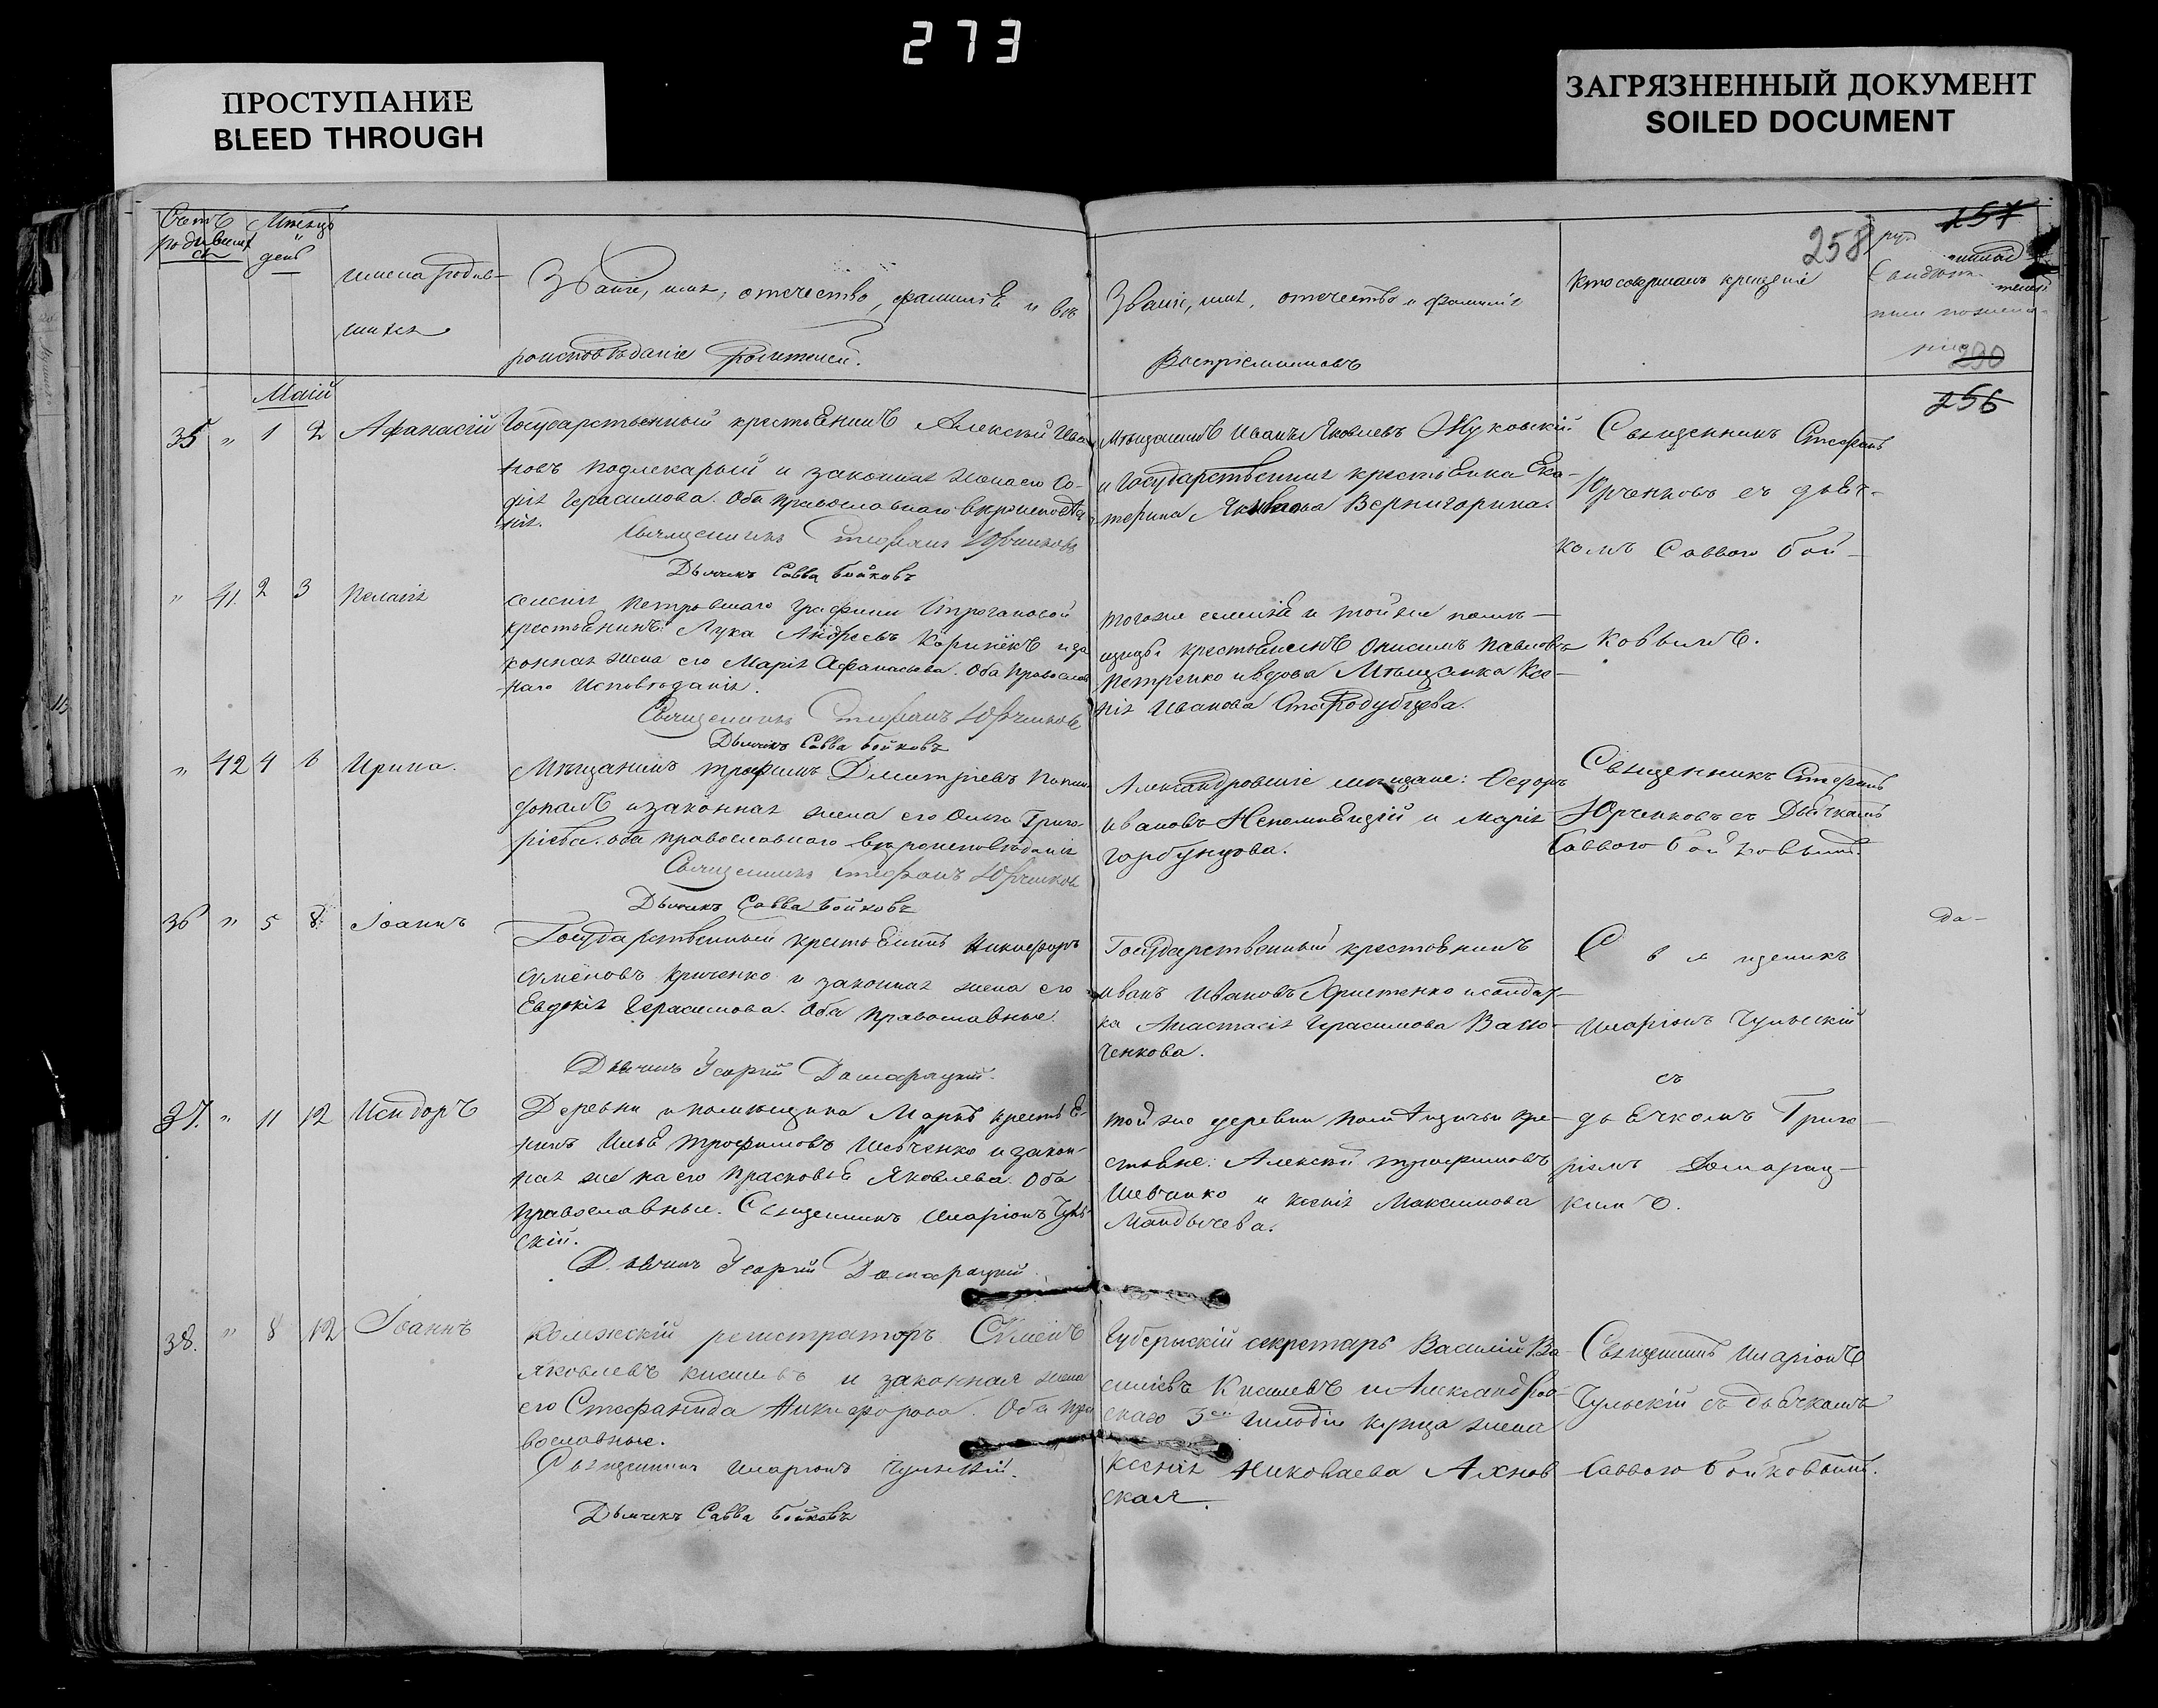 273
ПРОСТУПАНИЕ
BLEED THROUGH
ЗАГРЯЗНЕННЫЙ ДОКУМЕНТ
SOILED DOCUMENT
257
258
Счетъ родившихся
Мѣсяцъ и день
имена родив-
шихся
Званіе, имя, отечество, фамилія и вѣ
роисповѣданіе Родителей.
Званіе, имя, отечество и фамилія
Воспріемниковъ
Кто совершалъ крещеніе
290
256
Маій
35 " 1 2 Афанасій
Государственный крестьянинъ Алексѣй Ива
новъ Подлекарый и законная жена его Со-
фія Герасимова. Оба Православнаго вѣроисповѣда
нія.
Священникъ Стефанъ Юрченковъ
Дьячекъ Савва Бойковъ
Мѣщанинъ Иванъ Яковлевъ Жуковскій
и Государственная крестьянка Ека-
терина Яковлева Вернигорина.
Священникъ Стефанъ
Юрченковъ съ дьяч-
комъ Саввою Бой-
ковымъ.
" 41. 2 3 Пелагія
селенія Петровскаго графини Строгановой
крестьянинъ Лука Андреевъ и за
конная жена его Марія Афанасьева. Оба Православ
наго Исповѣданія.
Священникъ Стефанъ Юрченковъ
Дьячекъ Савва Бойковъ
тогоже селенія и тойже помѣ-
щицы крестьянинъ Павловъ
Петренко и вдова Мѣщанка Ксе-
нія Иванова Стародубцева.
" 42 4 6 Ирина.
Мѣщанинъ Трофимъ Дмитріевъ
и законная жена его Ольга Григо-
рьева. оба православнаго вѣроисповѣданія
Священникъ Стефанъ Юрченковъ
Дьячекъ Савва Бойковъ
Александровскіе мещане: Федоръ
Ивановъ Непомнящій и Марія
Горбунцова.
Священникъ Стефанъ
Юрченковъ съ Дьячкамъ
Саввою Бойковымъ.
36 " 5 8. Іоаннъ
Государственный крестьянинъ Никифоръ
Сѵмеоновъ Криченко и законная жена его
Евдокія Герасимова. Оба православные
Дьячекъ Георгій Домарацкій.
Государственный крестьянинъ
Иванъ Ивановъ и солдат-
ка Анастасія Герасимова
ченкова.
Священикъ
Иларіонъ Чульскій
съ
дьячкомъ Григо-
ріемъ Домарац-
кимъ.
да-
37. " 11 12 Исидоръ
Деревни крестья-
нинъ Илья Трофимовъ Шевченко и закон-
ная жена его Прасковья Яковлева. Оба
православные. Священникъ Иларіонъ Чуль-
скій.
Дьячекъ Георгій Домарацкій
той же деревни помѣщичьи кре-
стьяне: Алексѣй Трофимовъ
Шевченко и Ксенія Максимова
Мандычева.
38. " 8 12 Іоаннъ
Колежскій регистраторъ Сѵмеонъ
Яковлевъ Киселевъ и законная жена
его Стефанида Никифорова. Оба пра
вославные.
Священникъ Иларіонъ Чульскій.
Дьячекъ Савва Бойковъ
Губернскій секретарь Василій Ва-
силіевъ Киселевъ и Александров-
скаго 3ей гильдіи купца жена
Ксенія Николаева Ахнов
ская.
Священникъ Иларіонъ
Чульскій съ дьячкамъ
Саввою Бойковымъ.